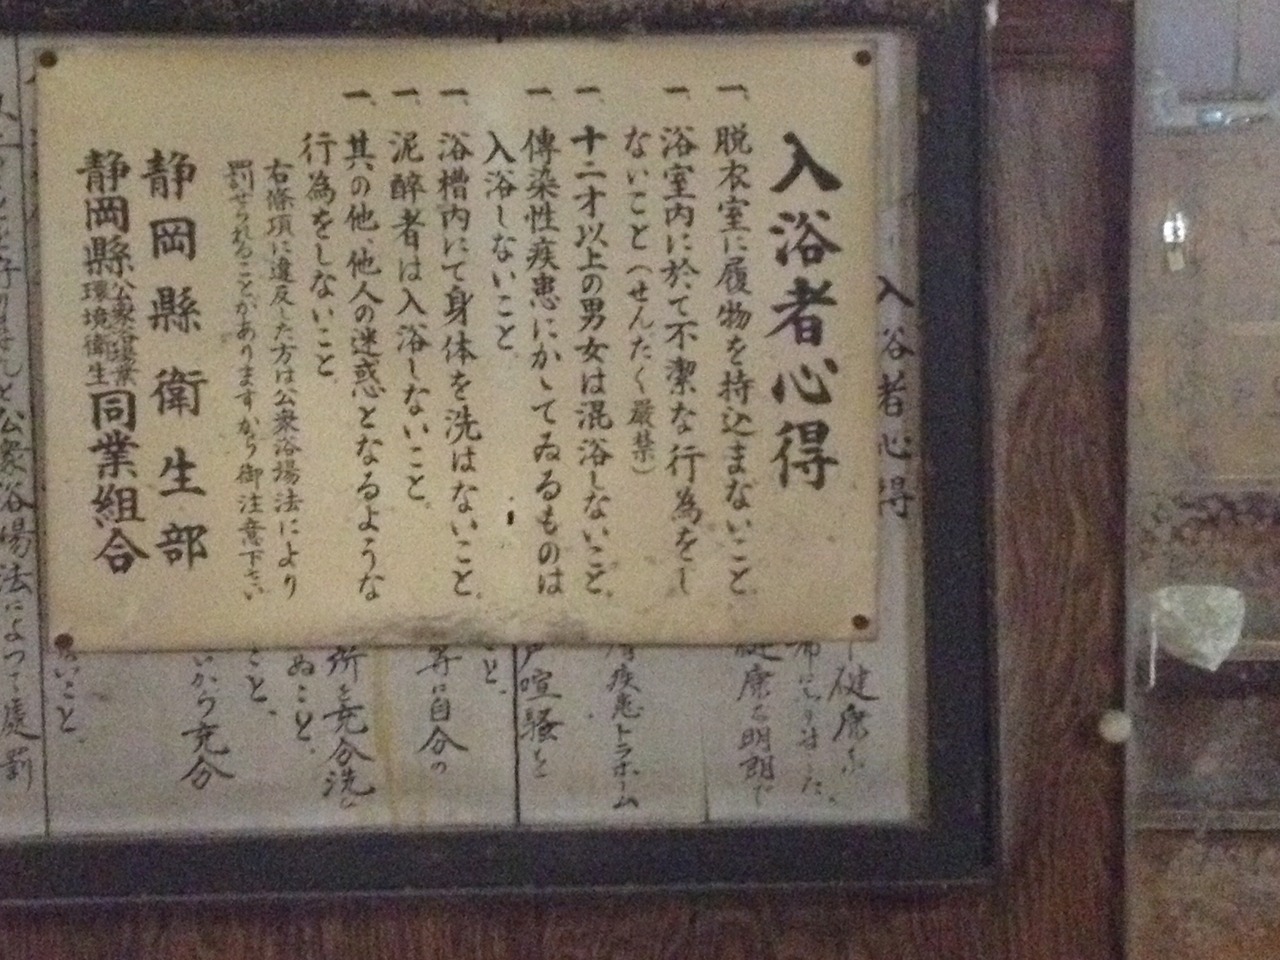 入浴者心得
一、脱衣室に履物を持込まないこと。
一、浴室内に於て不潔な行為をし
ないこと(せんたく厳禁)
一、十二才以上の男女は混浴しないこと。
一、傳染性疾患にかゝてゐるものは
入浴しないこと。
一、浴槽内にて身体を洗はないこと。
一、泥酔者は入浴しないこと。
一、其の他、他人の迷惑となるような
行為をしないこと。
右條項に違反した方は公衆浴場法により
罰せられることがありますから御注意下さい
静岡縣衛生部
静岡縣公衆浴場業環境衛生同業組合
入浴者心得
健康
健康な明朗で
疾患トラホーム
喧騒
と。
等に自分の
所を充分洗ひ
ぬこと。
こと、
いから充分
いこと。
公衆浴場法によつて處罰